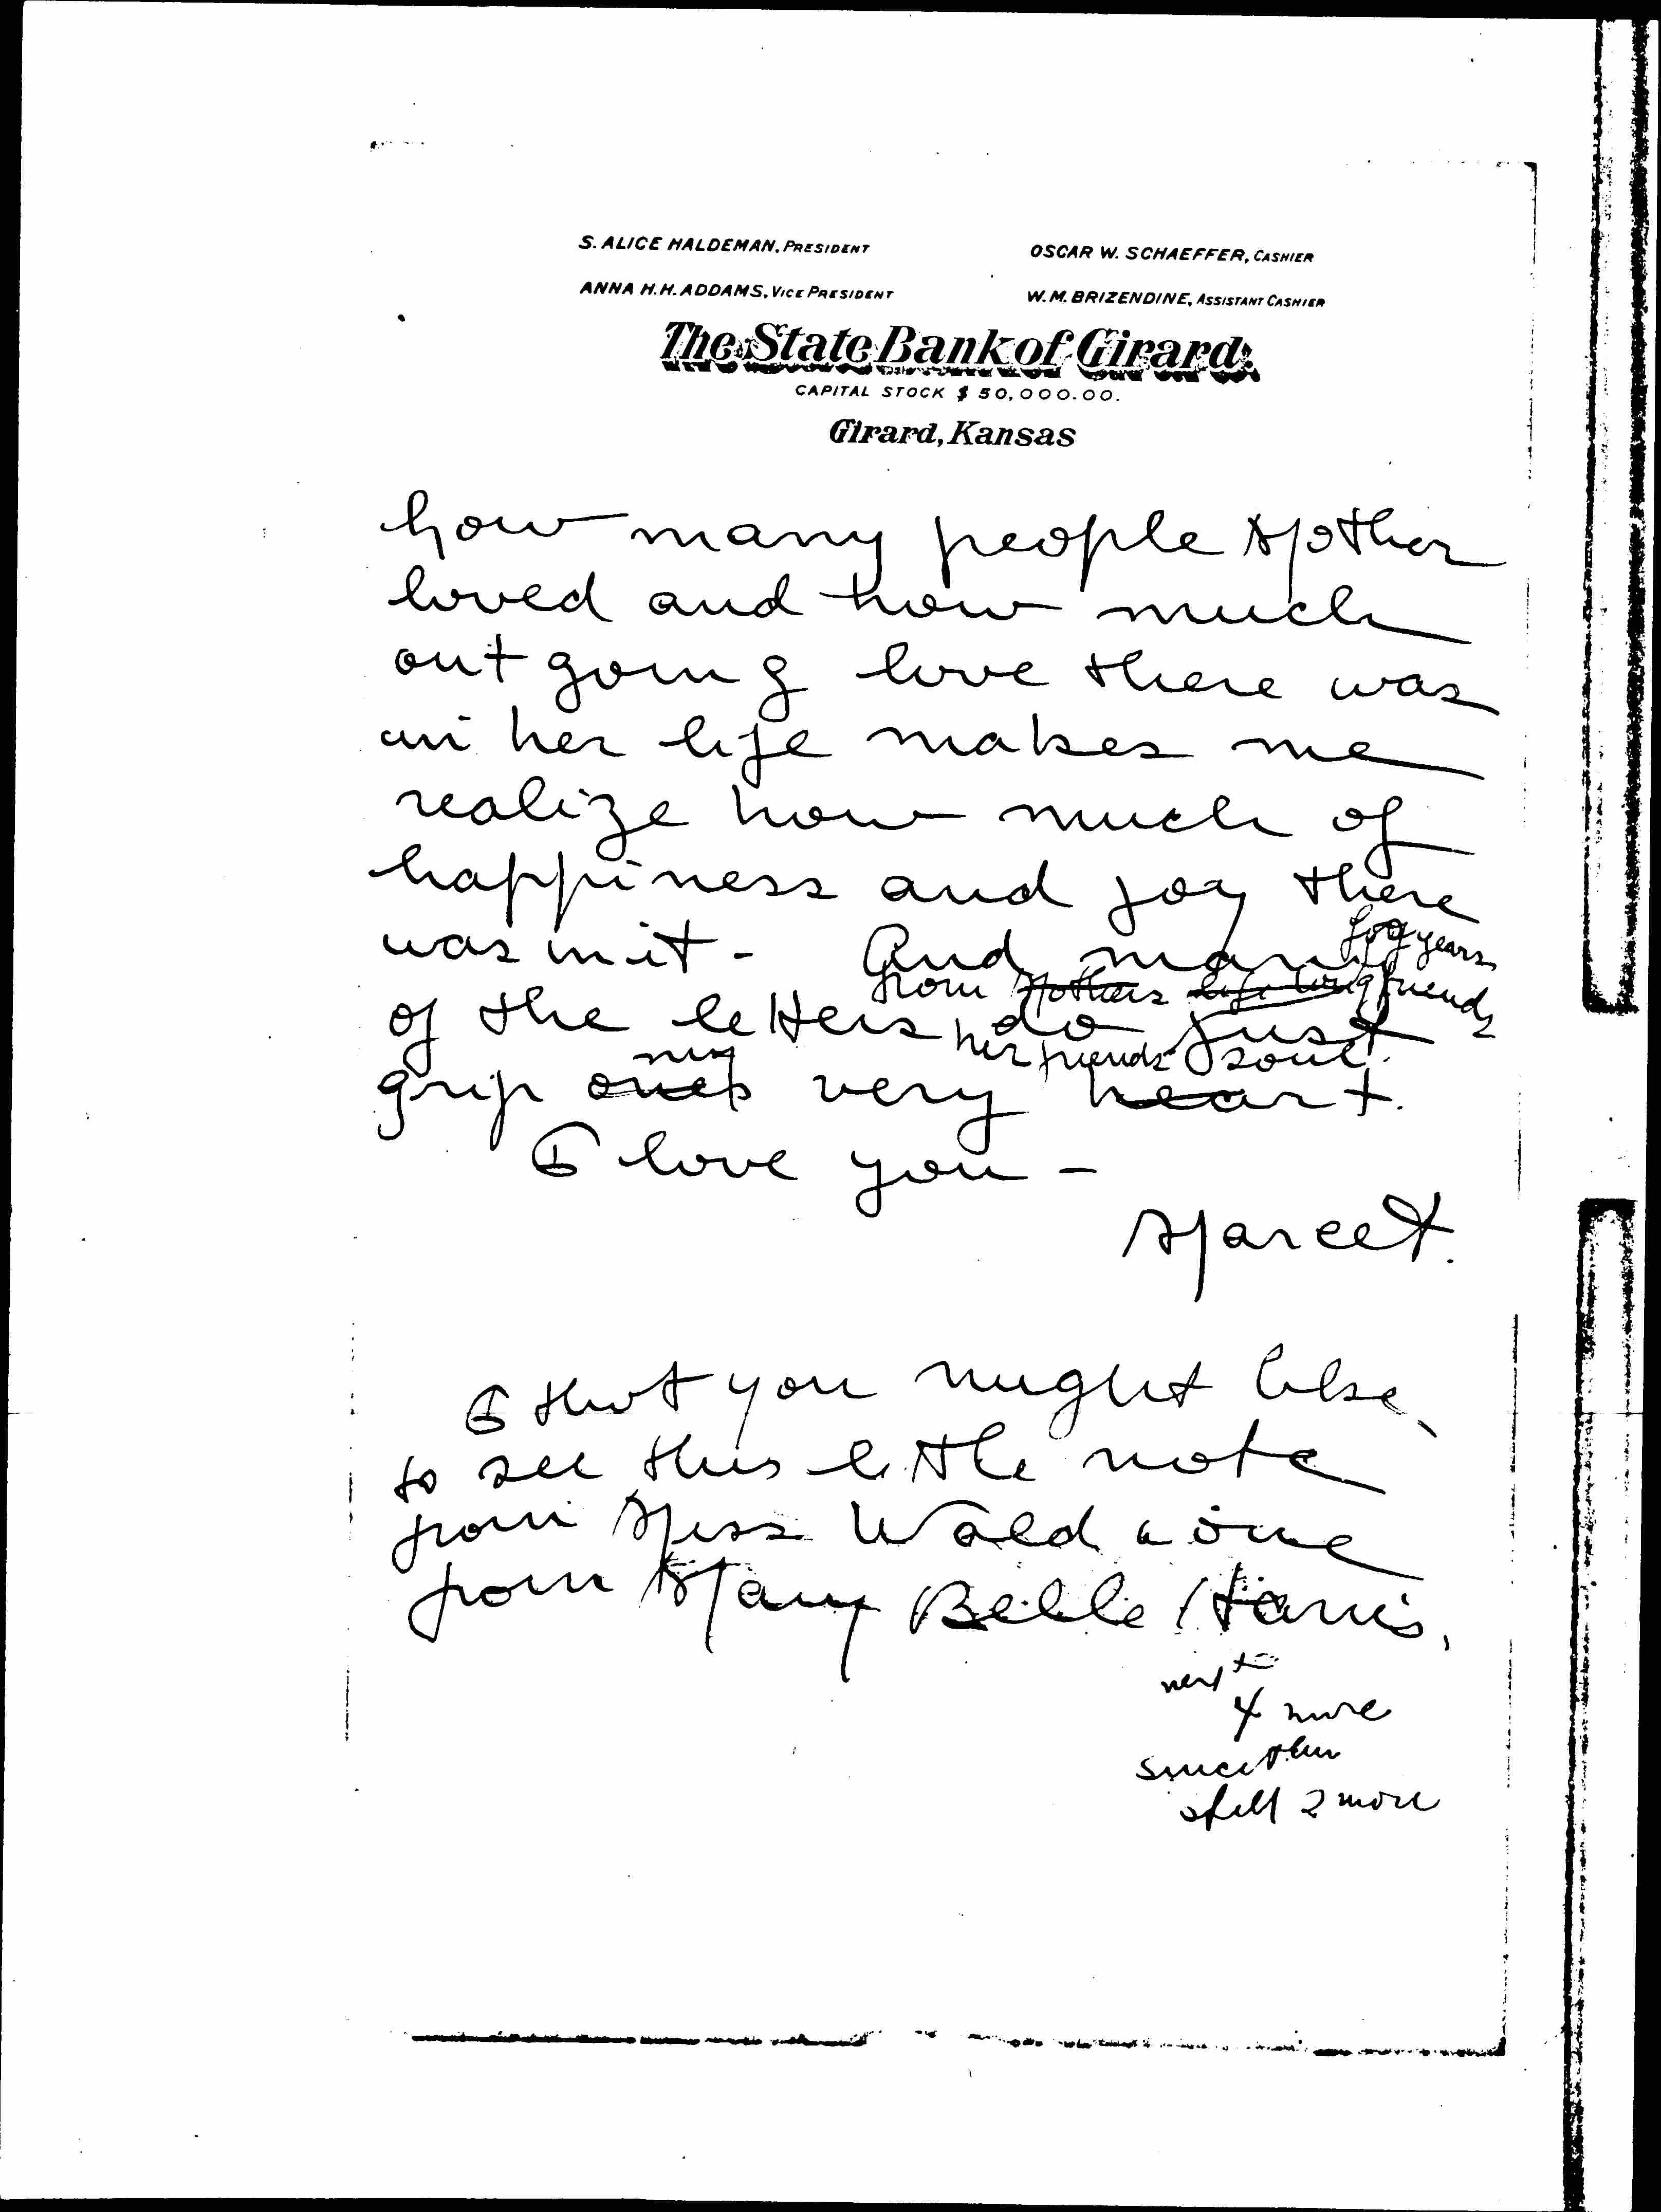 S. ALICE HALDEMAN, PRESIDENT
OSCAR W. SCHAEFFER, CASHIER
ANNA H. H. ADDAMS, VICE PRESIDENT
W. M. BRIZENDINE, ASSISTANT CASHIER
The State Bank of Girard.
CAPITAL STOCK $ 50,000.00.
Girard, Kansas
how many people Mother
loved and how much
out going love there was
in her life makes me
realize how much of
happiness and joy there
was in it - And many
for years
from Mothers life long friends
of the letters do just
my her friends soul.
grip ones very heart.
I love you -
Marcet.
I tho't you might like
to see this little note
from Miss Wald & one
from Mary Belle Harris.
next
4 more
since then
still 2 more